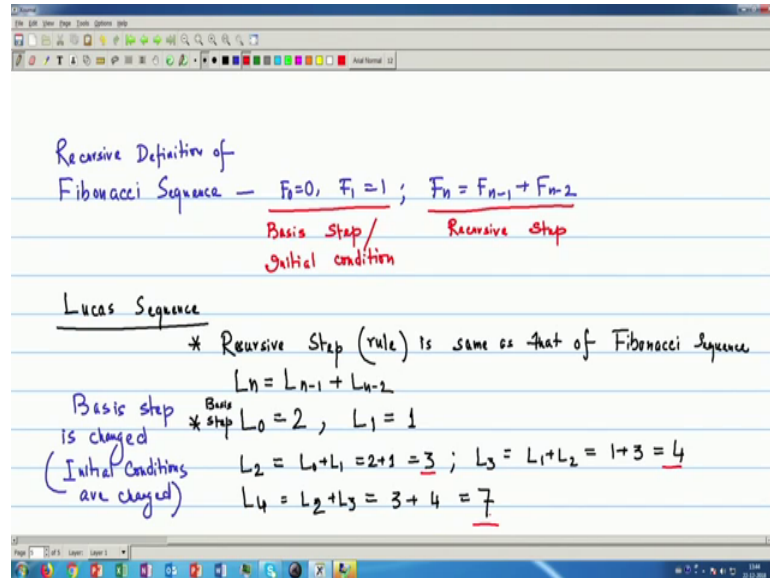 Journal
File Edit View Page Tools Options Help
Arial Normal 12
Recursive Definition of
Fibonacci Sequence — F₀=0, F₁=1 ; Fₙ = Fₙ₋₁ + Fₙ₋₂
Basis Step/ Recursive Step
Initial condition
Lucas Sequence
* Recursive Step (rule) is same as that of Fibonacci Sequence
Lₙ = Lₙ₋₁ + Lₙ₋₂
Basis step
is changed
(Initial Conditions
are changed)
* Basis
step L₀ = 2 , L₁ = 1
L₂ = L₀+L₁ = 2+1 = 3 ; L₃ = L₁+L₂ = 1+3 = 4
L₄ = L₂+L₃ = 3+4 = 7
Page 5 of 5 Layer: Layer 1